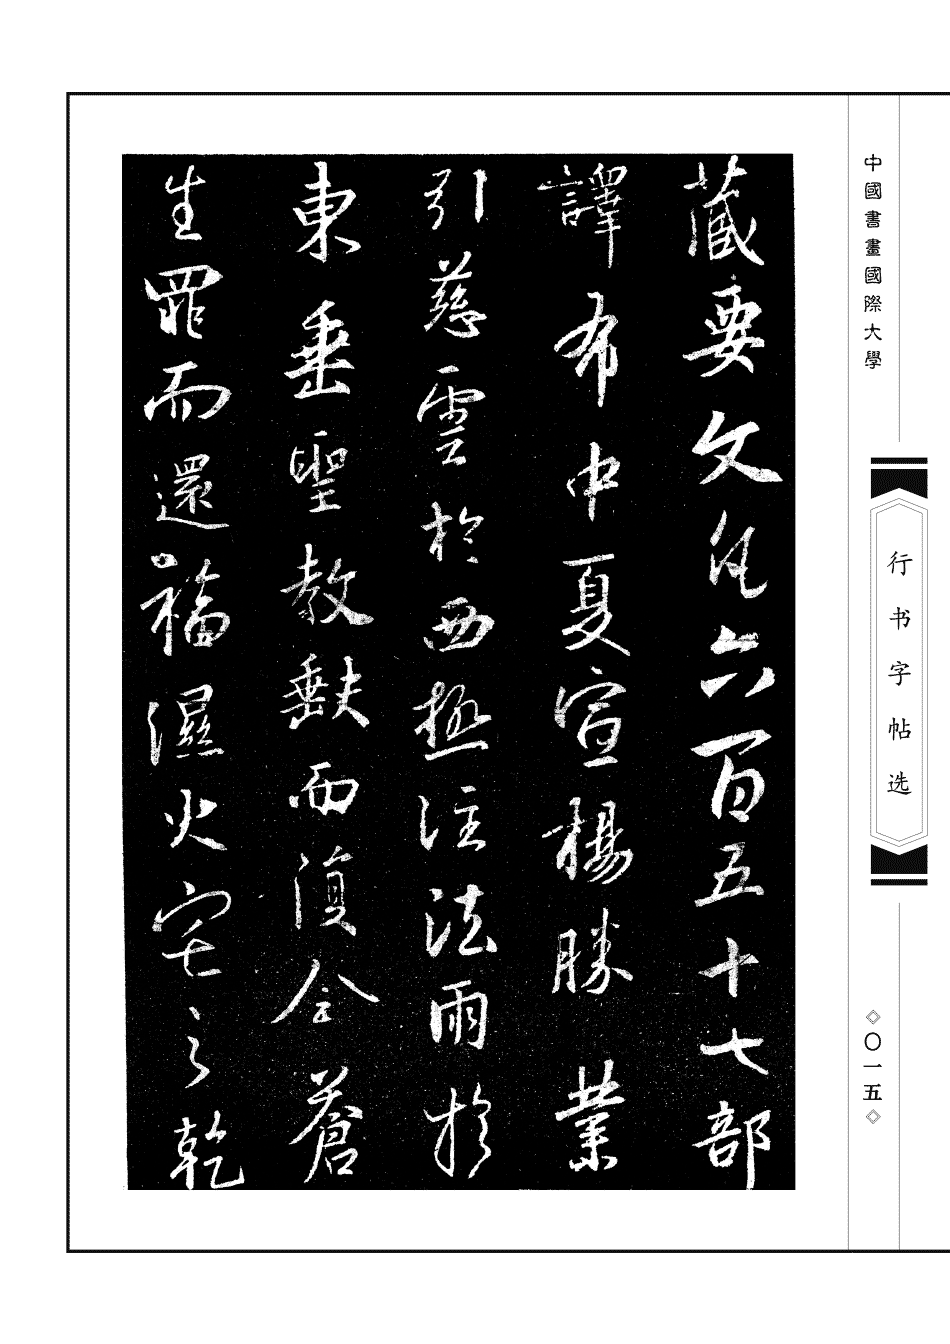 中國書畫國際大學
行书字帖选
〇一五
藏要文凡六百五十七部
譯布中夏宣楊勝業
引慈雲於西極注法雨於
東垂聖教缺而復全蒼
生罪而還福濕火宅之乾